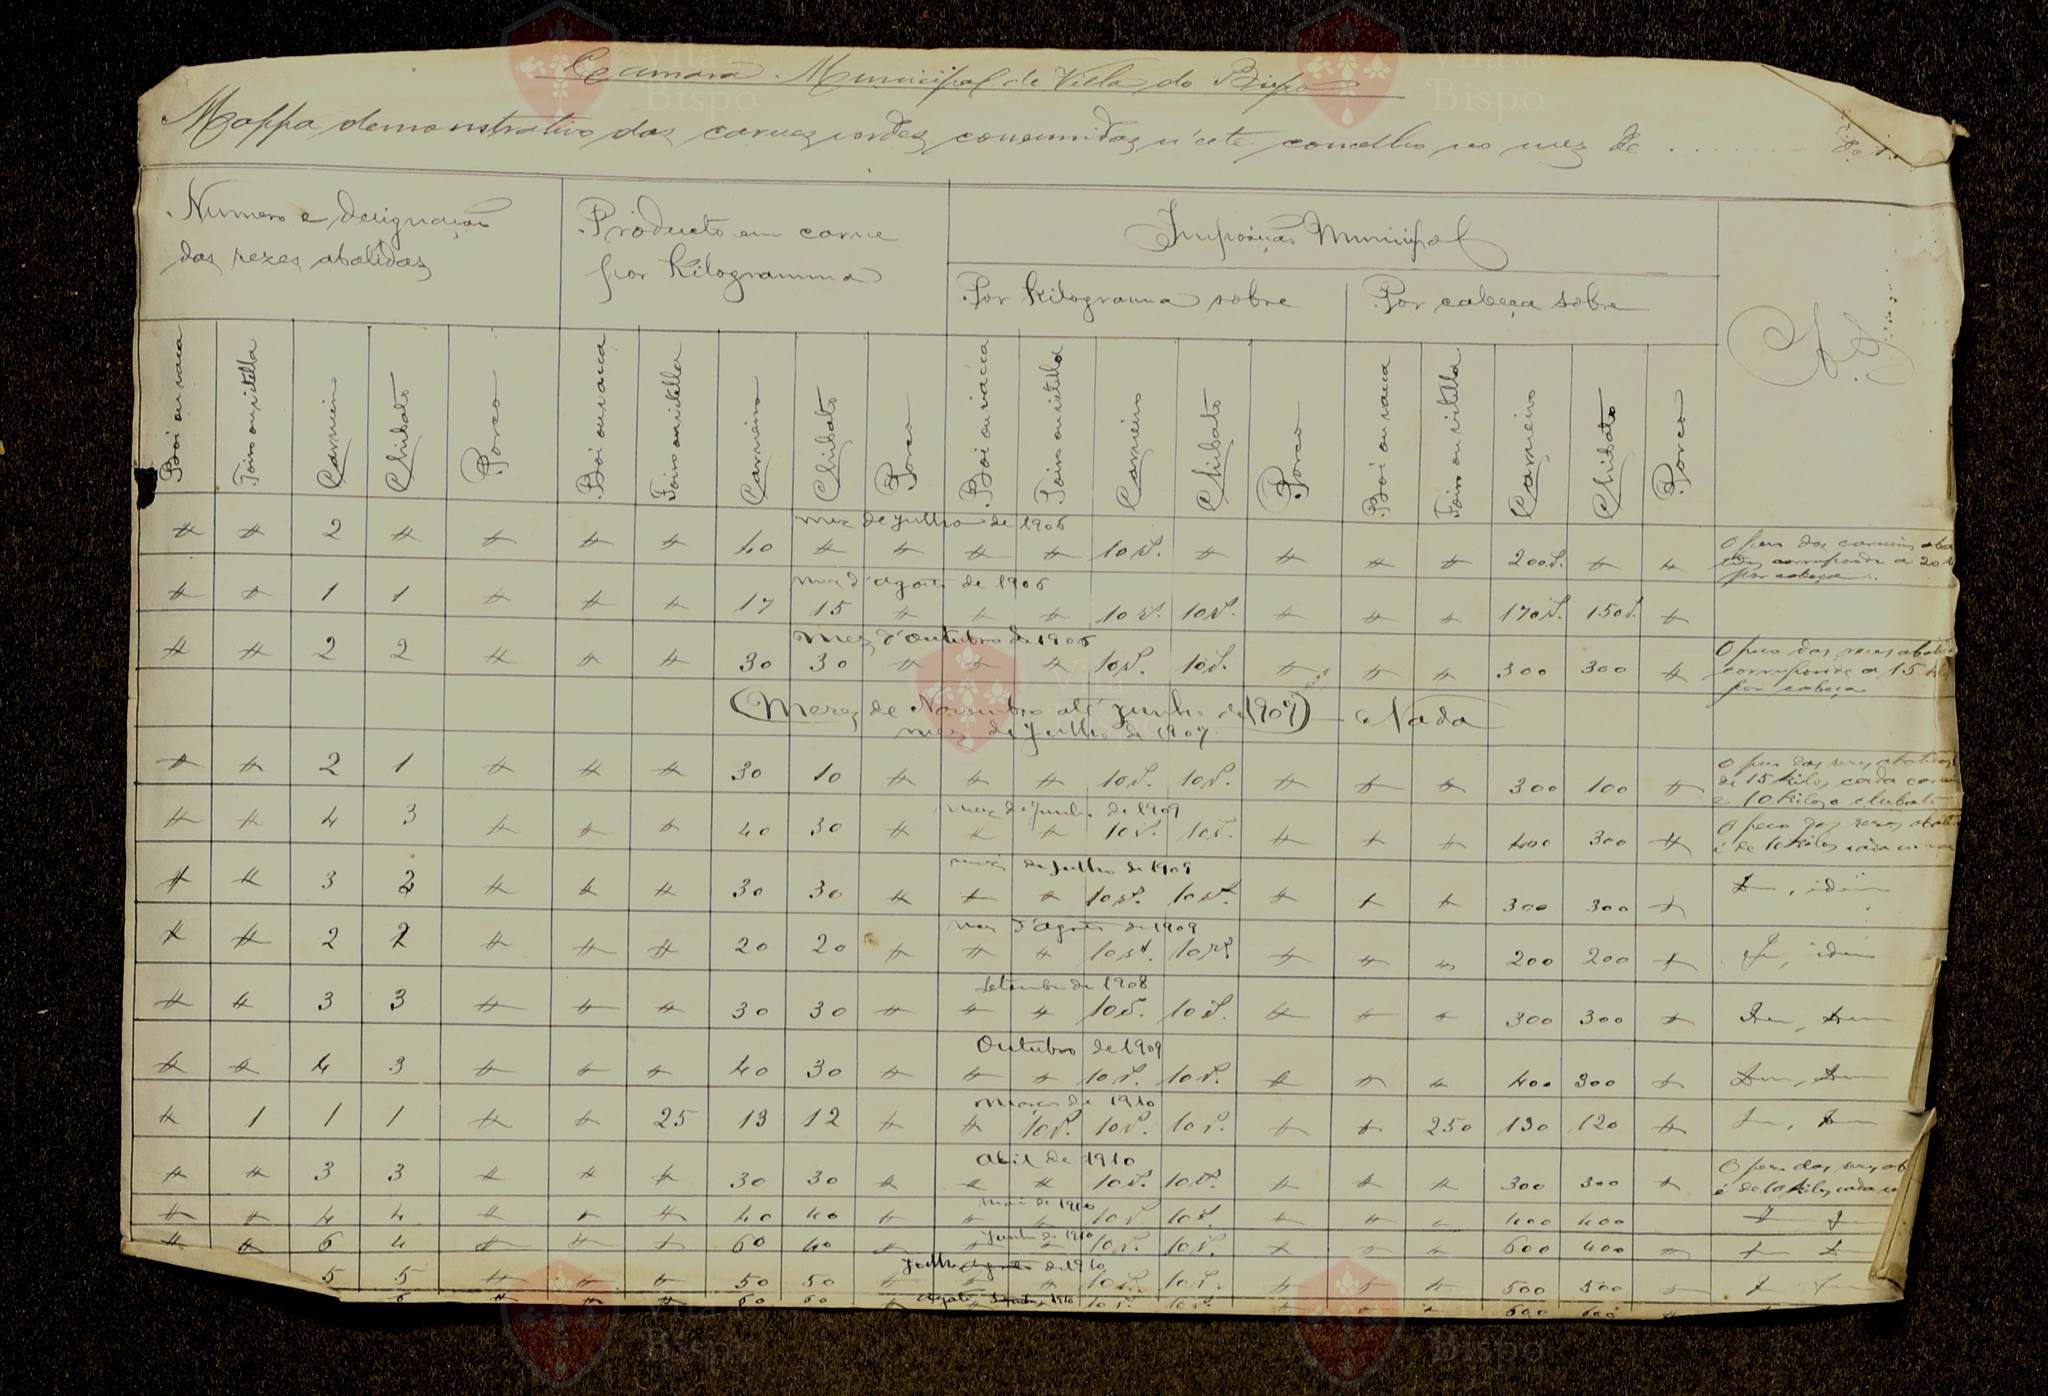 Camara Municipal de Villa do Bispo
Mappa demonstrativo das carnes verdes consumidas n'este concelho no mez de . . . . . . .
Numero e designação
das rezes abatidas
Producto em carne
por kilogramma
Imposição Municipal
Por kilogramma sobre
Por cabeça sobre
Boi ou vaca
Toiro ou vitella
Carneiro
Chibato
Porco
Boi ou vaca
Toiro ou vitella
Carneiro
Chibato
Porco
Boi ou vacca
Toiro ou vitella
Carneiro
Chibato
Porco
Boi ou vaca
Toiro ou vitella
Carneiro
Chibato
Porco
mez de julho de 1906
" " 2 " " " " 40 " " " " 10 rs. " " " " 200 rs. " "
O peso dos carneiros
corresponde a 20
por cabeça.
mez d'agosto de 1906
" " 1 1 " " " 17 15 " " " 10 rs. 10 rs. " " " 170 rs. 150 rs. "
Mez d'Outubro de 1906
" " 2 2 " " " 30 30 " " " 10 rs. 10 rs. " " " 300 300 "
O peso das rezes
corresponde a 15
por cabeça
(Mezes de Novembro até junho de 1907) - Nada
mez de Julho de 1907
" " 2 1 " " " 30 10 " " " 10 rs. 10 rs. " " " 300 100 "
O peso das rezes abatidas
de 15 kilos cada
e 10 kilos o chibato
mez de junho de 1909
" " 4 3 " " " 40 30 " " " 10 rs. 10 rs. " " " 400 300 "
O peso das rezes
é de 10 kilos cada
mez de julho de 1909
" " 3 " " " 30 30 " " " 10 rs. 10 rs. " " " 300 300 "
idem
mez d'agosto de 1909
" " 2 " " " 20 20 " " " 10 rs. 10 rs. " " " 200 200 "
idem
Setembro de 1908
" " 3 3 " " " 30 30 " " " 10 rs. 10 rs. " " " 300 300 "
Outubro de 1909
" " 4 3 " " " 40 30 " " " 10 rs. 10 rs. " " " 400 300 "
Março de 1910
" 1 1 1 " " 25 13 12 " " 10 rs. 10 rs. 10 rs. " " 250 130 120 "
Abril de 1910
" " 3 3 " " " 30 30 " " " 10 rs. 10 rs. " " " 300 300 "
O peso das rezes
é de 10 kilos cada
maio de 1910
" " 4 4 " " " 40 40 " " " 10 rs. 10 rs. " " " 400 400 "
Junho de 1910
" " 6 4 " " " 60 40 " " " 10 rs. 10 rs. " " " 600 400 "
Julho Agosto de 1910
5 5 " " " 50 50 " " " 10 rs. 10 rs. " " " 500 500 "
Agosto 1910
6 " " " 60 60 " 10 rs. 10 rs. " " " 600 600 "
Município
Vila do
Bispo